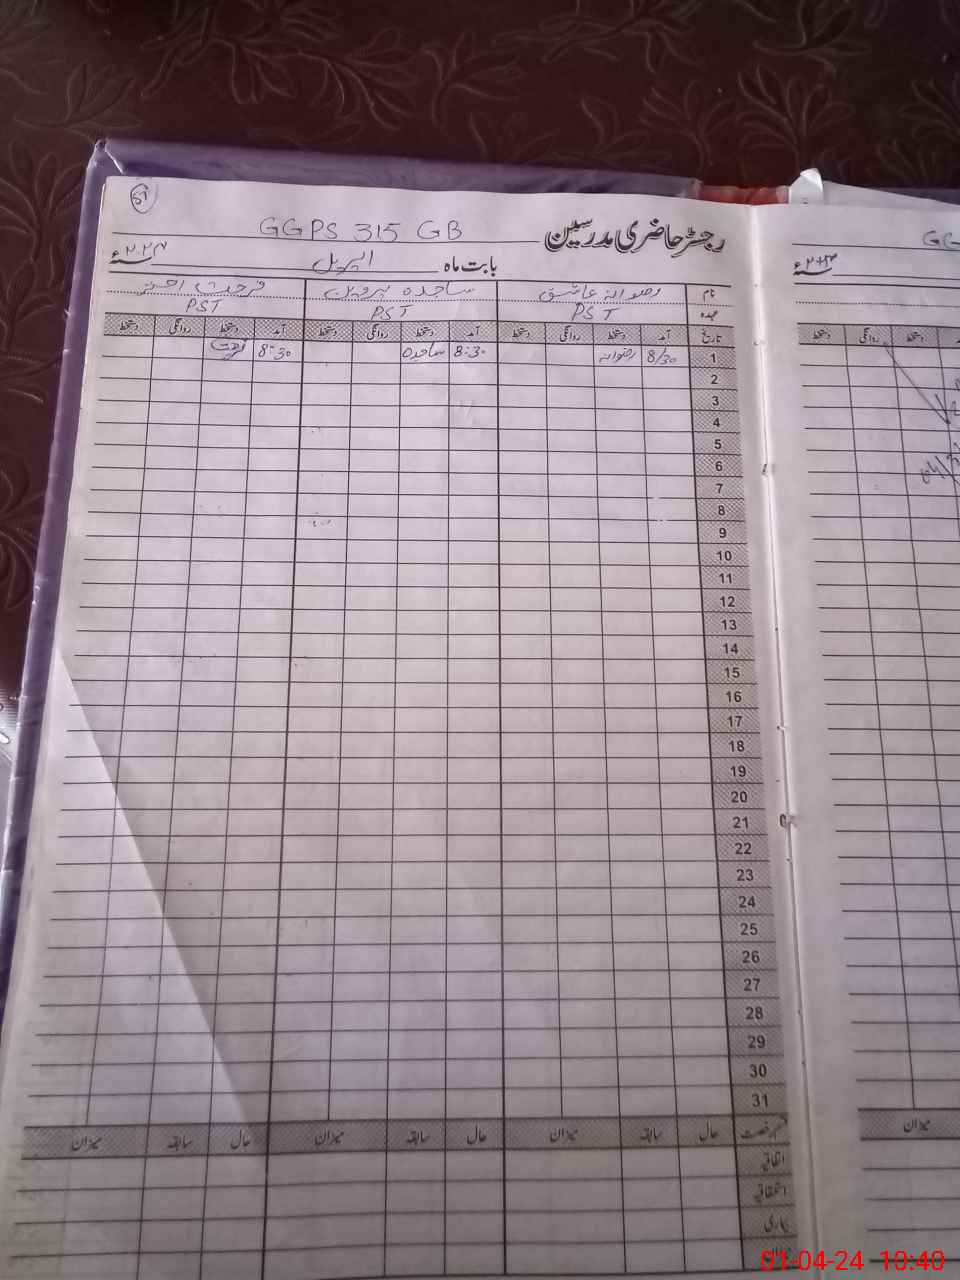 GGPS 315 GB رجسٹر حاضری مدرسین
بابت ماہ اپریل ۲۰۲۴ء
نام رضوانہ عاشق ساجدہ پروین فرحت اختر
عہدہ PST PST PST
تاریخ آمد دستخط روانگی دستخط آمد دستخط روانگی دستخط آمد دستخط روانگی دستخط
1 8/30 رضوانہ 8:30 ساجدہ 8:30
2
3
4
5
6
7
8
9
10
11
12
13
14
15
16
17
18
19
20
21
22
23
24
25
26
27
28
29
30
31
قسم رخصت حال سابقہ میزان حال سابقہ میزان حال سابقہ میزان
اتفاقیہ
استحقاقیہ
بیماری
روانگی دستخط
میزان
01-04-24 10:40